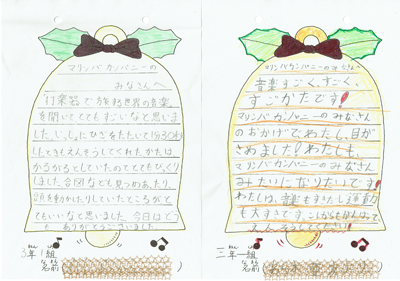 マリンバカンパニーの
みなさんへ
打楽器で旅する世界の音楽
を聞いてとてもすごいなと思いま
した。いっしょにひざをたたいと
したときもえんそうしてくれたかたは
かるがるとしていたのでとてもびっくり
しました。合図なども見つめあったり、
頭を動かしたりしていたところがと
てもいいなと思いました。今日はどう
もありがとうございました。
3年1組
名前
マリンバカンパニーのみなさんへ
音楽すごく、すごく、
すごかたです!
マリンバカンパニーのみなさん
のおかげでわたし、目が
さめました!わたしも、
マリンバカンパニーのみなさん
みたいになりたいです!
わたしは、音楽もすきだし運動
も大すきです。これからもがんばって
えんそうしてください!
三年一組
名前